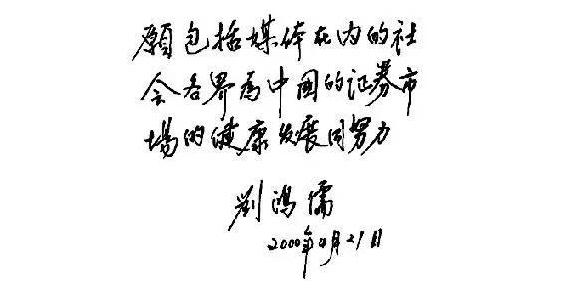 願包括媒体在内的社
会各界为中国的证券市
場的健康发展同努力
刘鸿儒
2000年4月21日